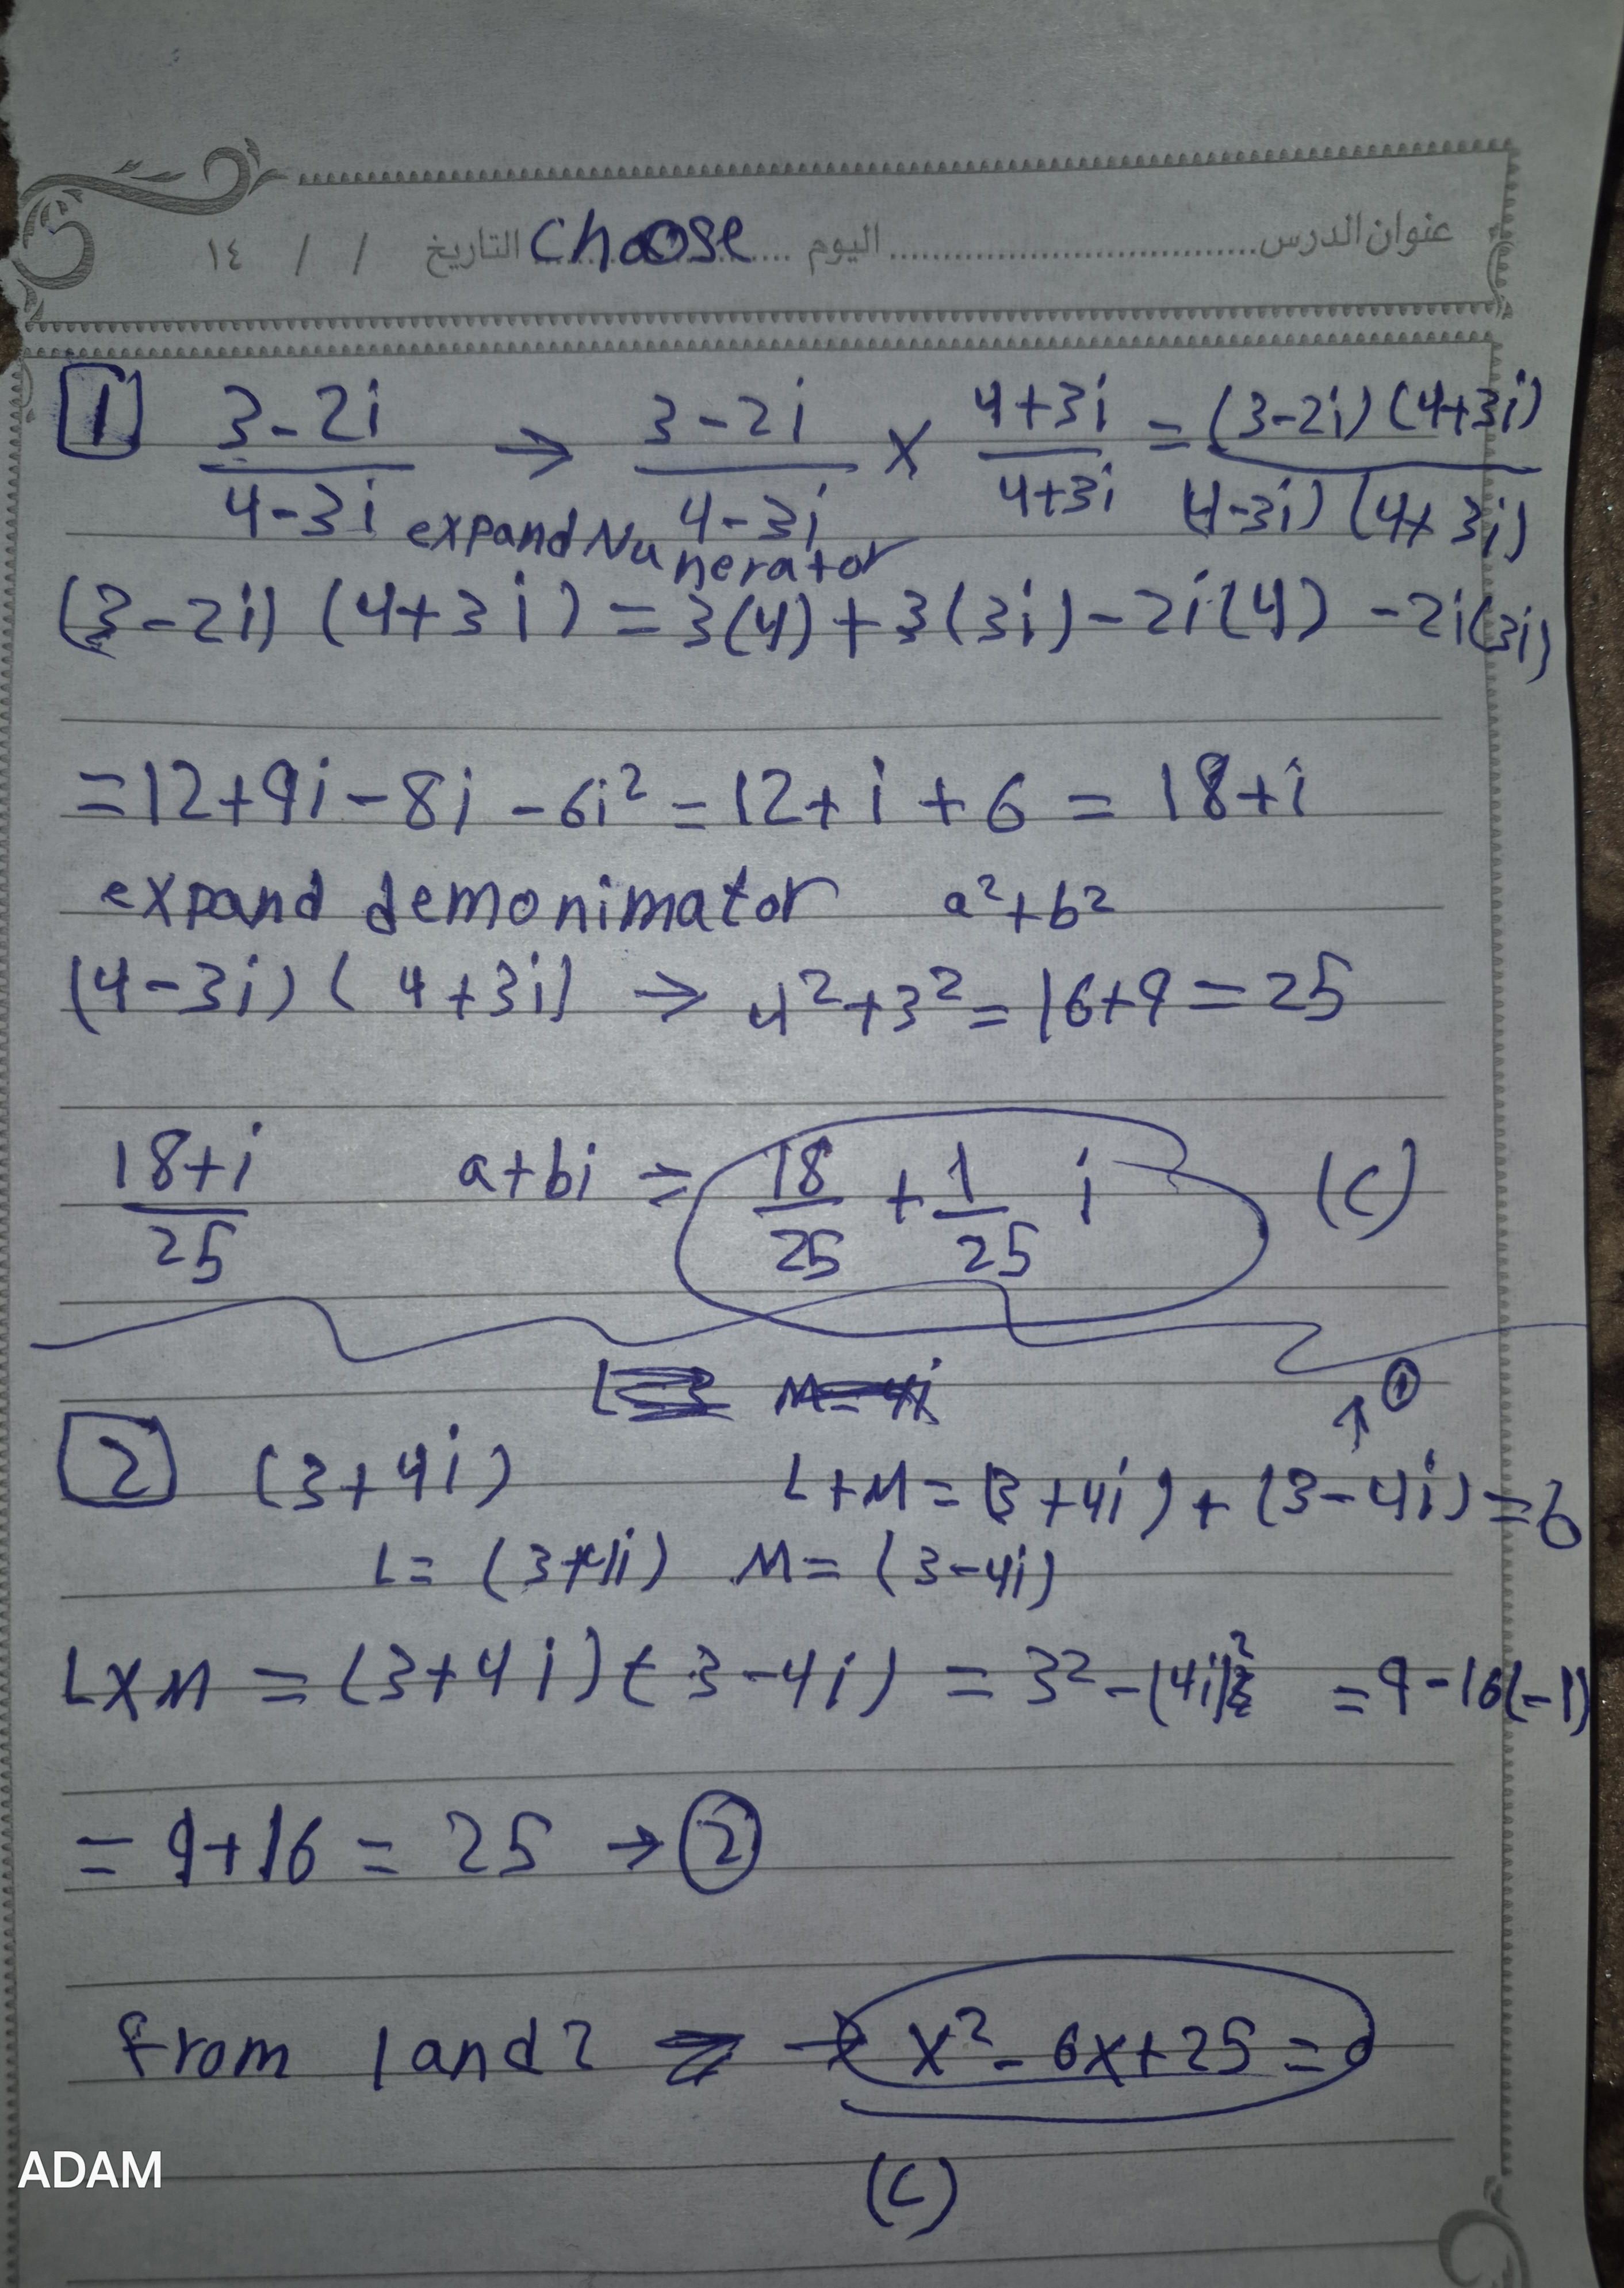 عنوان الدرس ........ اليوم ........ التاريخ / / ١٤
Choose
1 (3-2i)/(4-3i) → (3-2i)/(4-3i) × (4+3i)/(4+3i) = (3-2i)(4+3i)/(4-3i)(4+3i)
expand Nunerator
(3-2i) (4+3i) = 3(4)+3(3i)-2i(4) -2i(3i)
=12+9i-8i-6i² =12+i+6 = 18+i
expand demonimator a²+b²
(4-3i)(4+3i) → 4²+3²=16+9=25
(18+i)/25 a+bi = 18/25 + 1/25 i (C)
↑ 1
2 (3+4i) L+M=(3+4i)+(3-4i)=6
L= (3+4i) M= (3-4i)
L×M = (3+4i)(3-4i) = 3²-(4i)² =9-16(-1)
= 9+16 = 25 → 2
from 1 and 2 → x²-6x+25=0
(C)
ADAM